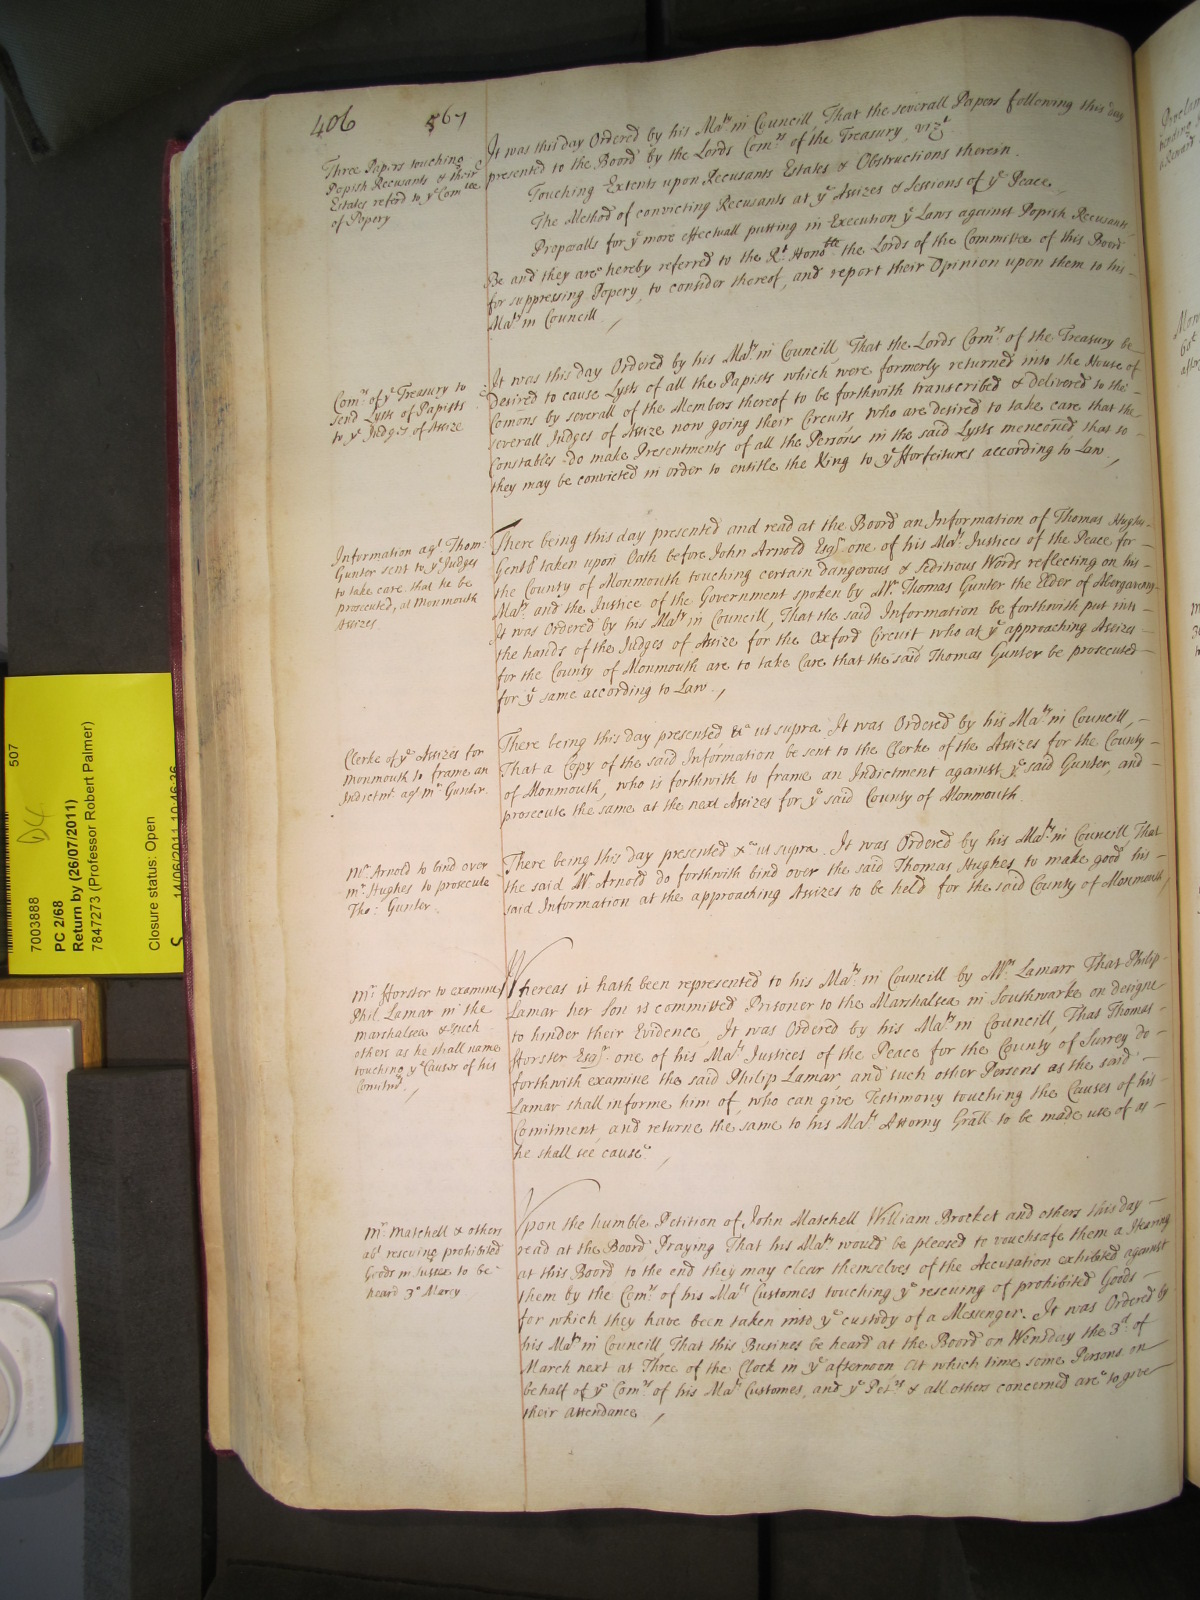 406 567
Three Papers touching
Popish Recusants & their
Estates referd to ye Comtee
of Popery
It was this day Ordered by his Maty in Councill, That the severall Papers following this day
presented to the Board by the Lords Comrs of the Treasury, vizt
Touching Extents upon Recusants Estates & Obstructions therein.
The Method of convicting Recusants at ye Assizes & Sessions of ye Peace,
Proposalls for ye more effectuall putting in Execution ye Laws against Popish Recusants
Be and they are hereby referred to the Rt Honoble the Lords of the Committee of this Board
for suppressing Popery, to consider thereof, and report their Opinion upon them to his
Maty in Councill
Comrs of ye Treasury to
send Lysts of Papists
to ye Judges of Assize
It was this day Ordered by his Maty in Councill, That the Lords Comrs of the Treasury be
desired to cause Lysts of all the Papists which were formerly returned into the House of
Comons by severall of the Members thereof to be forthwith transcribed & delivered to the
severall Judges of Assize now going their Circuits who are desired to take care that the
Constables do make Presentments of all the Persons in the said Lysts menconed, that so
they may be convicted in order to entitle the King to ye Forfeitures according to Law.,
Information agt Thom:
Gunter sent to ye Judges
to take care that he be
prosecuted, at Monmouth
Assizes
There being this day presented and read at the Board an Information of Thomas Hughes
Gent taken upon Oath before John Arnold Esqr one of his Mats Justices of the Peace for
the County of Monmouth touching certain dangerous & seditious Words reflecting on his
Maty and the Justice of the Government spoken by Mr Thomas Gunter the Elder of Abergaveny
It was Ordered by his Maty in Councill, That the said Information be forthwith put into
the hands of the Judges of Assize for the Oxford Circuit who at ye approaching Assizes
for the County of Monmouth are to take Care that the said Thomas Gunter be prosecuted
for ye same according to Law.,
Clerke of ye Assizes for
Monmouth to frame an
Indictmt agt mr Gunter
There being this day presented &c ut supra It was Ordered by his Maty in Councill,
That a Copy of the said Information be sent to the Clerke of the Assizes for the County
of Monmouth, who is forthwith to frame an Indictment against ye said Gunter, and
prosecute the same at the next Assizes for ye said County of Monmouth
mr Arnold to bind over
mr Hughes to prosecute
Tho: Gunter
There being this day presented &c ut supra. It was Ordered by his Maty in Councill That
the said Mr Arnold do forthwith bind over the said Thomas Hughes, to make good his
said Information at the approaching Assizes to be held for the said County of Monmouth
mr Forster to examine
Phil Lamar in the
marshalsea & such
others as he shall name
touching ye Causes of his
Comitmt.
Whereas it hath been represented to his Maty in Councill by Mrs Lamarr That Philip
Lamar her Son is committed Prisoner to the Marshalsea in Southwarke on designe
to hinder their Evidence, It was Ordered by his Maty in Councill, That Thomas
Forster Esqr one of his Mats Justices of the Peace for the County of Surrey do
forthwith examine the said Philip Lamar, and such other Persons as the said
Lamar shall informe him of, who can give Testimony touching the Causes of his
Comitment, and returne the same to his Mats Attorny Grall to be made use of as
he shall see cause.
mr Matchell & others
abt rescuing prohibited
Goods in Sussex to be
heard 3d March
Upon the humble Petition of John Matchell William Brocket and others this day
read at the Board Praying That his Maty would be pleased to vouchsafe them a Hearing
at this Board to the end they may clear themselves of the Accusation exhibited against
them by the Comrs of his Mats Customes touching ye rescuing of prohibited Goods
for which they have been taken into ye custody of a Messenger. It was Ordered by
his Maty in Councill That this Busines be heard at the Board on Wensday the 3d of
March next at Three of the Clock in ye afternoon At which time some Persons on
behalf of ye Comrs of his Mats Customes, and ye Petrs & all others concerned are to give
their Attendance
507
D4
7003888
PC 2/68
Return by (26/07/2011)
7847273 (Professor Robert Palmer)
Closure status: Open
14/06/2011 10:46:26
S